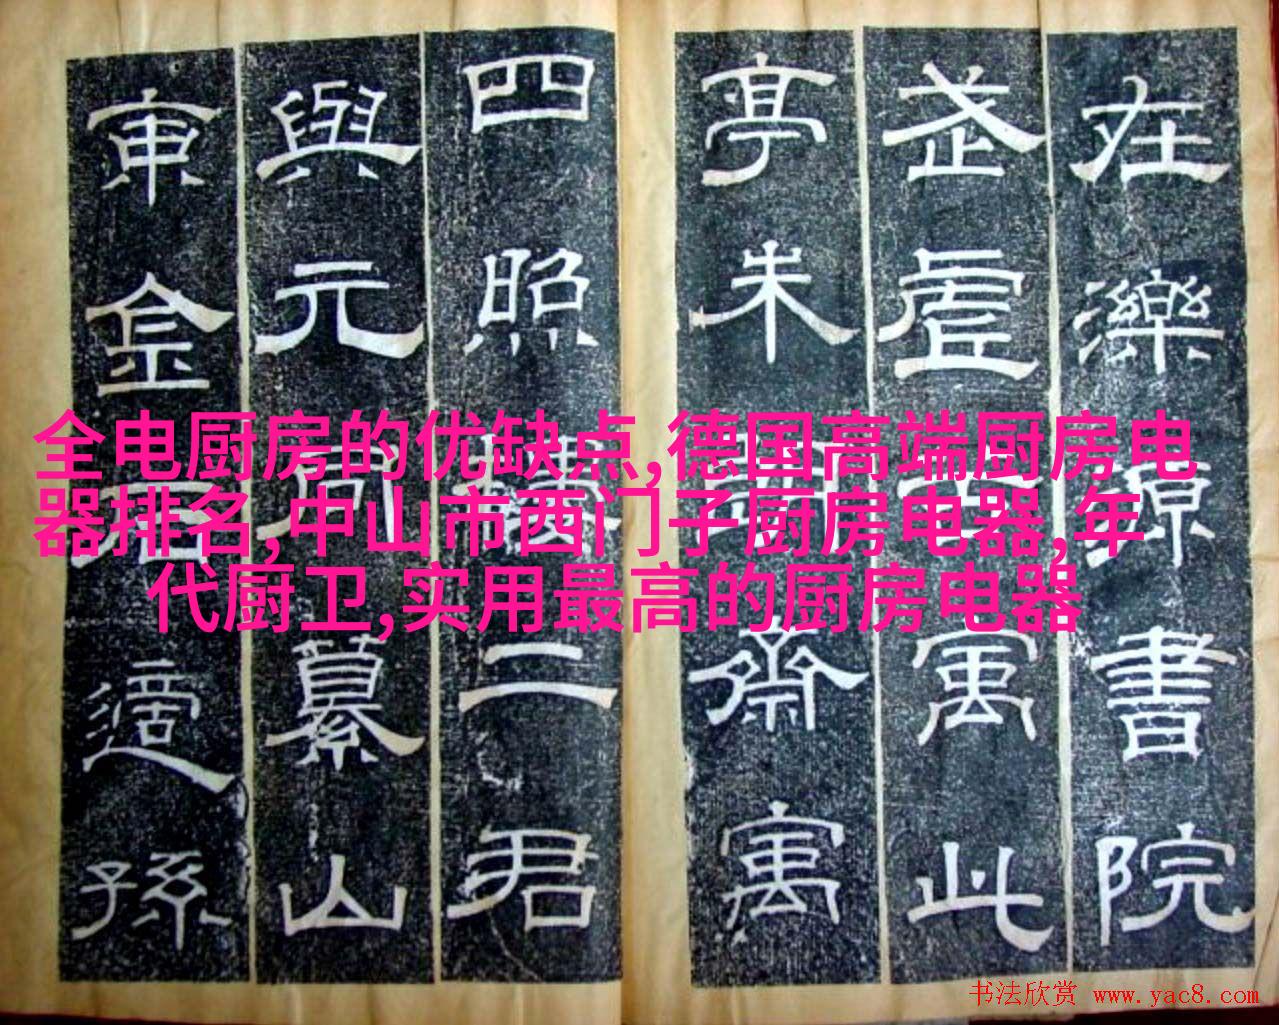 在濼源書院
武虛寓此
亭朱朗齋寓
四照樓二君
與元同纂山
東金石適孫
全电厨房的优缺点,德国高端厨房电
器排名,中山市西门子厨房电器,年
代厨卫,实用最高的厨房电器
书法欣赏 www.yac8.com